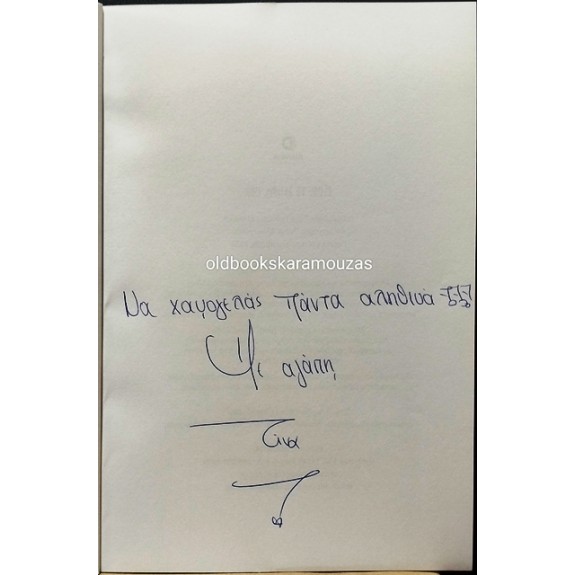 oldbookskaramouzas
Να χαμογελάς πάντα αληθινά
Με αγάπη,
Τίνα